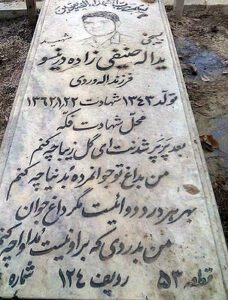 بسیجی شهید
یداله حنیفی زاده درنسو
فرزند اله وردی
تولد ۱۳۴۳ شهادت ۱۳۶۲/۱/۲۲
محل شهادت فکه
بعد پرپر شدنت ای گل زیبا چه کنم
من به داغ تو جوانمرده به دنیا چه کنم
بهر هر درد دوائیست مگر داغ جوان
من به دردی که بر او نیست مداوا چه کنم
قطعه ۵۳ ردیف ۱۲۴ شماره